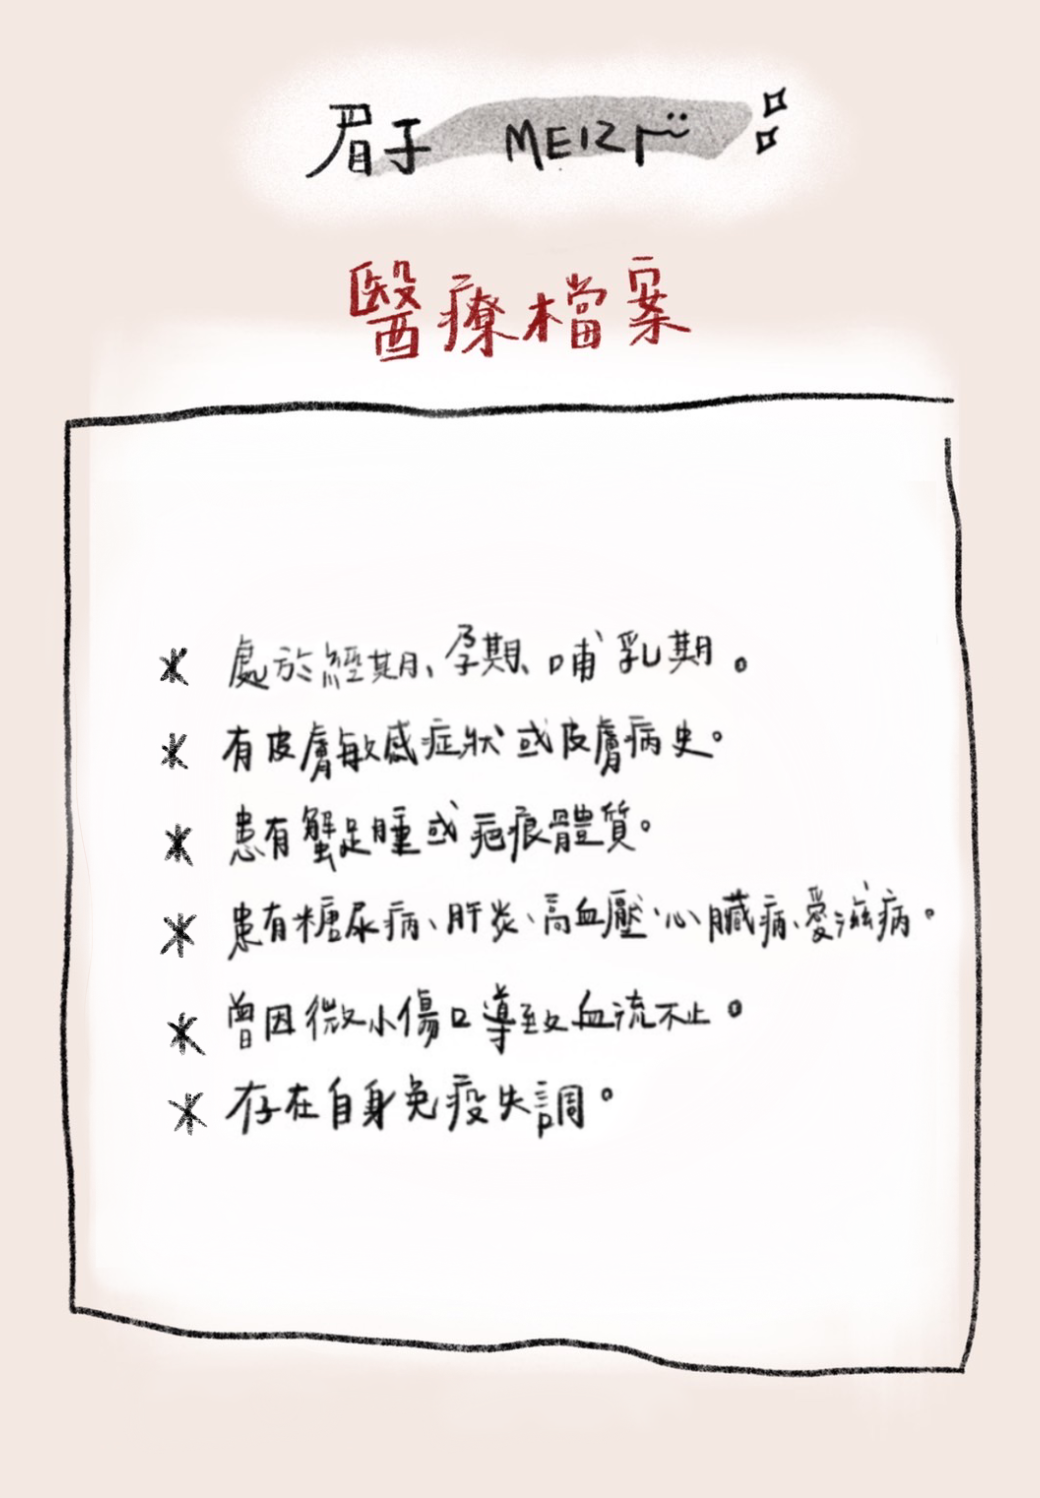 眉子 MEIZI
醫療檔案
* 處於經期、孕期、哺乳期。
* 有皮膚敏感症狀或皮膚病史。
* 患有蟹足腫或疤痕體質。
* 患有糖尿病、肝炎、高血壓、心臟病、愛滋病。
* 曾因微小傷口導致血流不止。
* 存在自身免疫失調。